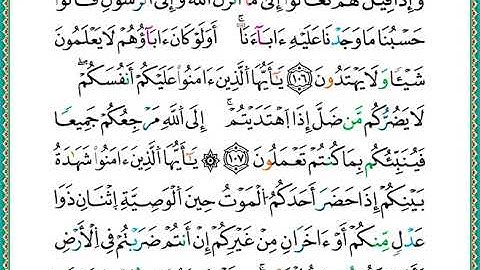 وَإِذَا قِيلَ لَهُمْ تَعَالَوْا۟ إِلَىٰ مَآ أَنزَلَ ٱللَّهُ وَإِلَى ٱلرَّسُولِ قَالُوا۟
حَسْبُنَا مَا وَجَدْنَا عَلَيْهِ ءَابَآءَنَآۚ أَوَلَوْ كَانَ ءَابَآؤُهُمْ لَا يَعْلَمُونَ
شَيْـًٔا وَلَا يَهْتَدُونَ ١٠٦ يَـٰٓأَيُّهَا ٱلَّذِينَ ءَامَنُوا۟ عَلَيْكُمْ أَنفُسَكُمْۖ
لَا يَضُرُّكُم مَّن ضَلَّ إِذَا ٱهْتَدَيْتُمْۚ إِلَى ٱللَّهِ مَرْجِعُكُمْ جَمِيعًا
فَيُنَبِّئُكُم بِمَا كُنتُمْ تَعْمَلُونَ ١٠٧ يَـٰٓأَيُّهَا ٱلَّذِينَ ءَامَنُوا۟ شَهَـٰدَةُ
بَيْنِكُمْ إِذَا حَضَرَ أَحَدَكُمُ ٱلْمَوْتُ حِينَ ٱلْوَصِيَّةِ ٱثْنَانِ ذَوَا
عَدْلٍ مِّنكُمْ أَوْ ءَاخَرَانِ مِنْ غَيْرِكُمْ إِنْ أَنتُمْ ضَرَبْتُمْ فِى ٱلْأَرْضِ